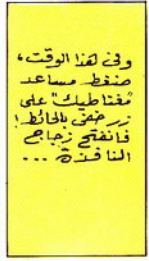 وفى هذا الوقت،
ضغط مساعد
"مغناطيك" على
زر خفى بالحائط!
فانفتح زجاج
النافذة ...